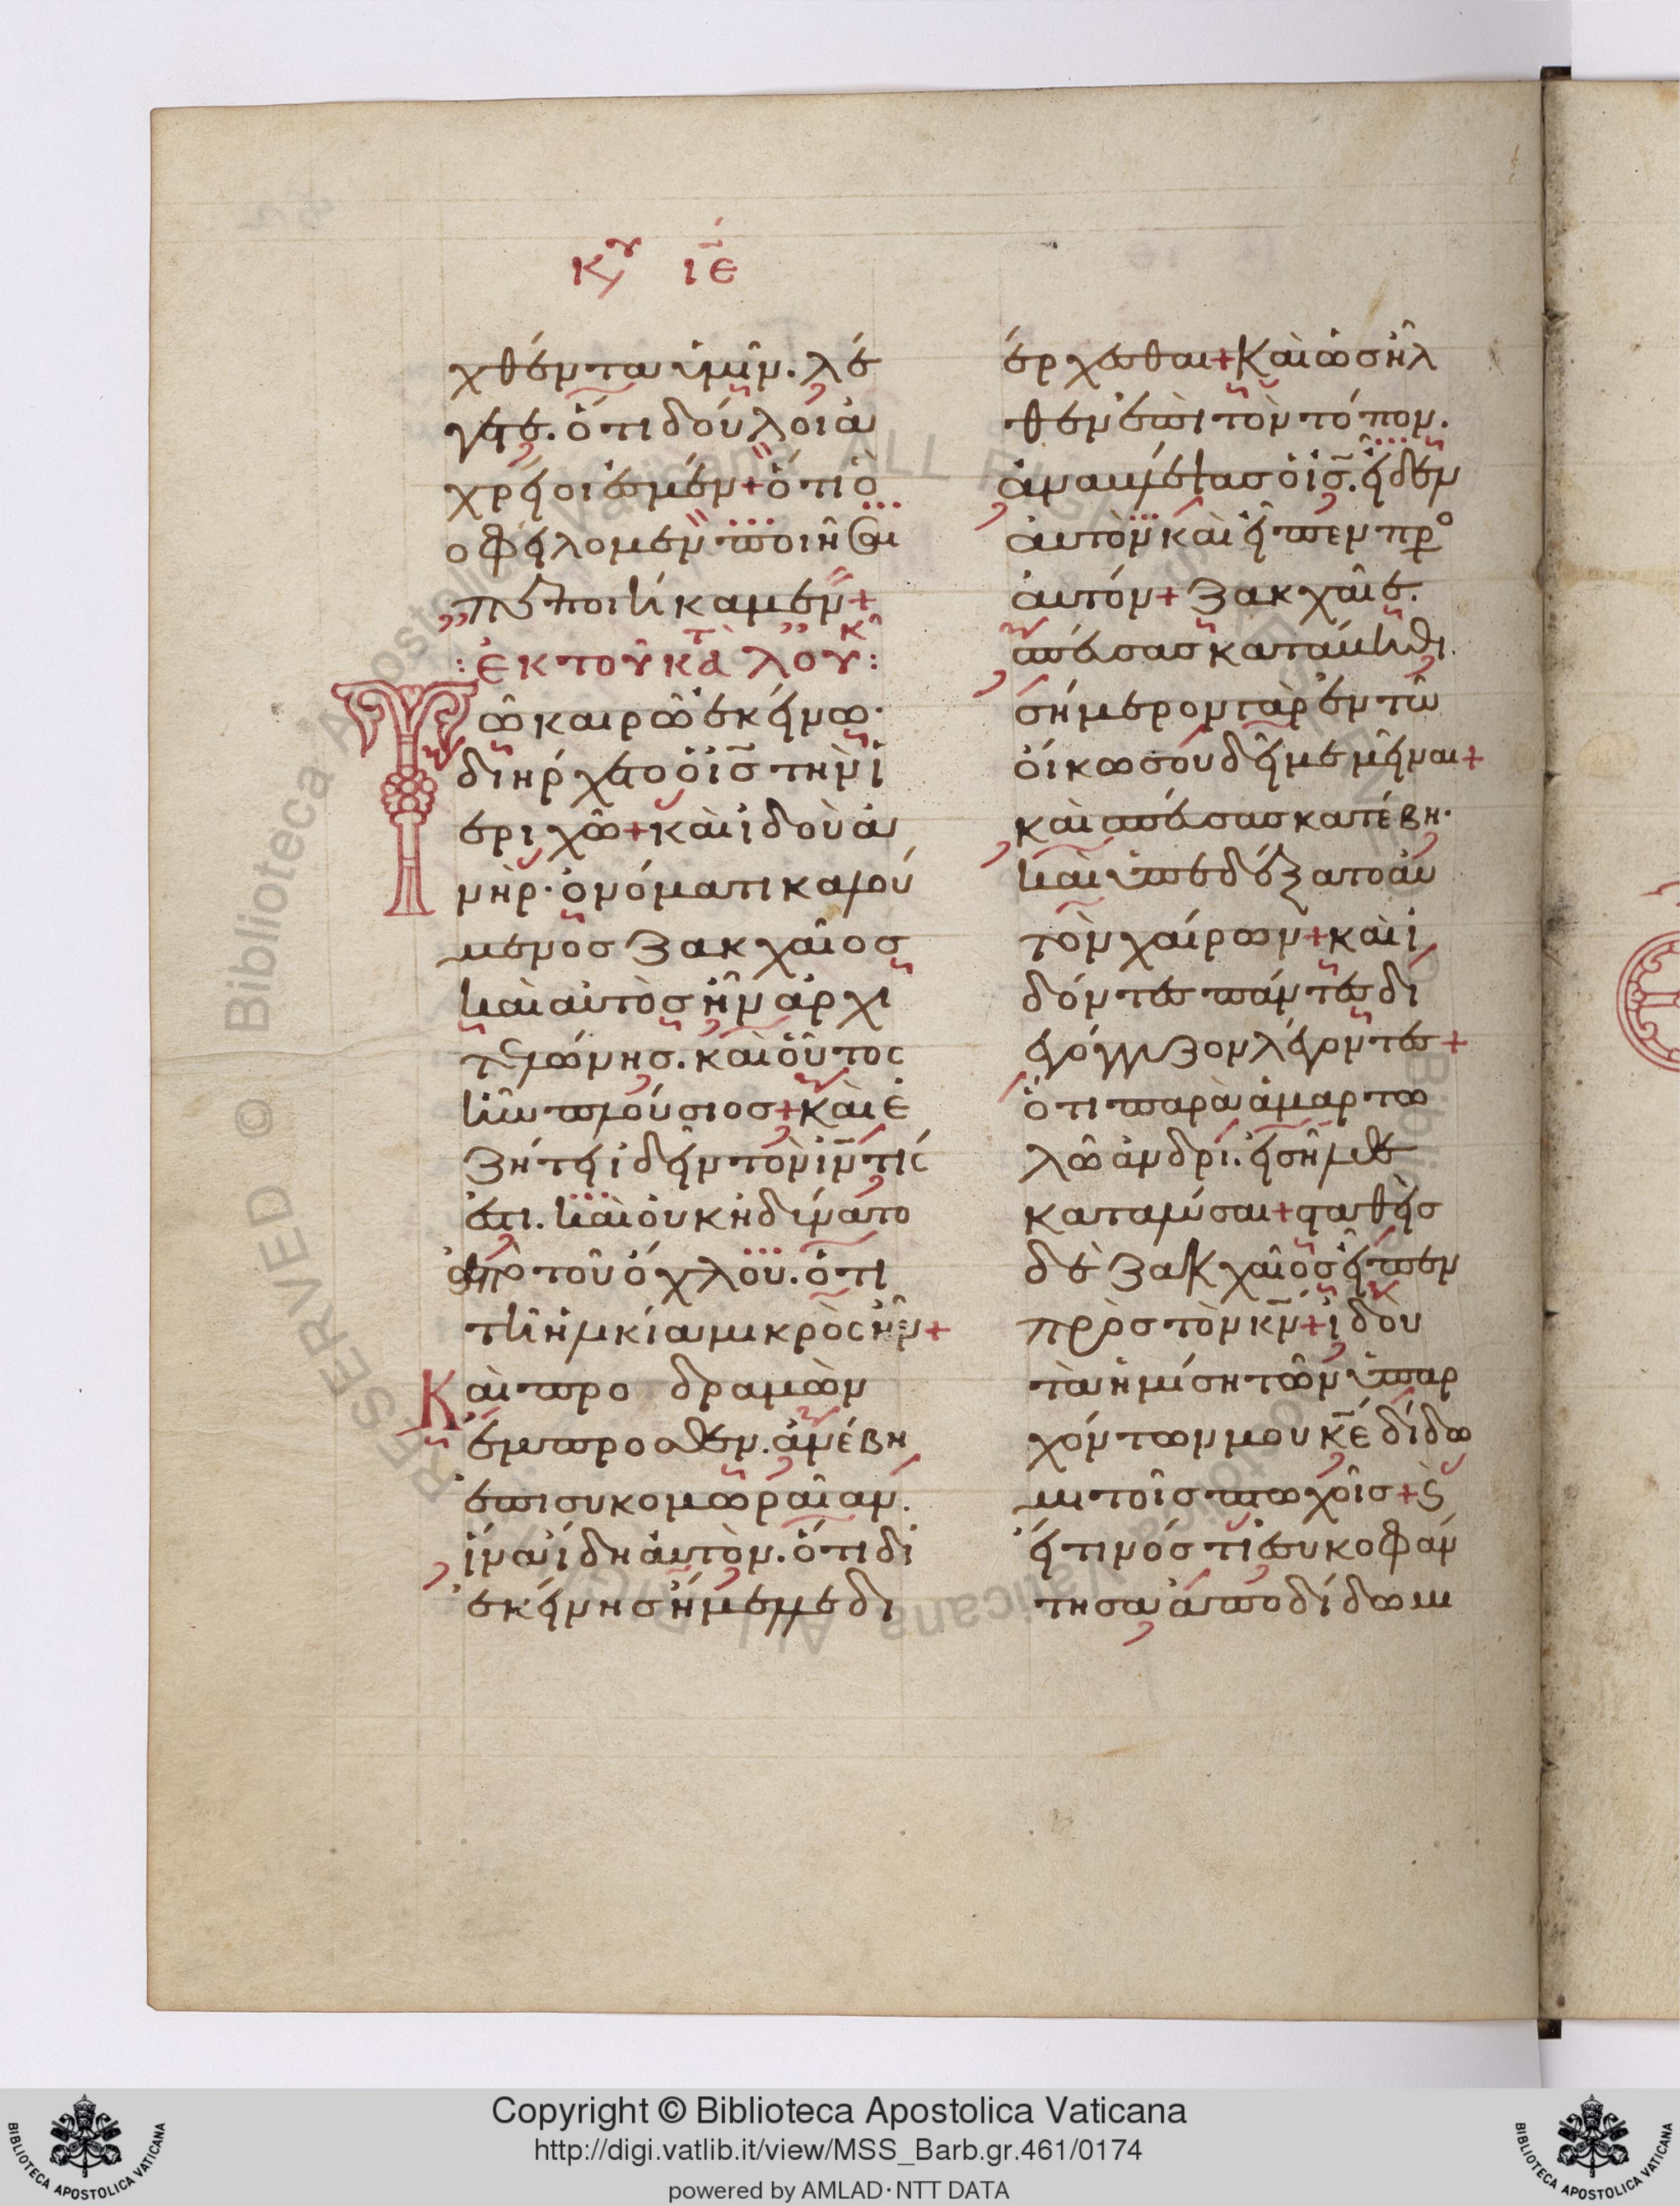 Κυ ΙΕ
χθέντα ὑμῖν. λέ
γετε. ὅτι δοῦλοι ἀ
χρεῖοι ἐσμέν + ὅτι ὃ
ὀφείλομεν ποιῆσαι
πεποιήκαμεν +
: ἐκ τοῦ κατὰ λουκ :
Τῶ καιρῶ ἐκείνω·
διήρχετο ὁ ις τὴν ἱ
εριχῶ + καὶ ἰδοὺ ἀ
νὴρ· ὀνόματι καλού
μενος Ζακχαῖος
καὶ αὐτὸς ἦν ἀρχι
τελώνης. καὶ οὗτος
ἦν πλούσιος + καὶ ἐ
ζήτει ἰδεῖν τὸν ιν τίς
ἐστι. καὶ οὐκ ἠδύνατο
ἀπὸ τοῦ ὄχλου. ὅτι
τῆ ἡλικία μικρὸς ἦν +
Καὶ προ δραμὼν
ἔμπροσθεν. ἀνέβη
ἐπι συκομωραῖαν.
ἵνα ἴδη αὐτὸν. ὅτι δι
ἐκείνης ἤμελλε δι
έρχεσθαι + Καὶ ὡς ἦλ
θεν ἐπὶ τὸν τόπον.
ἀναβλέψας ὁ ις. εἶδεν
αὐτὸν καὶ εἶπεν πρὸ
αὐτόν + Ζακχαῖε.
σπεύσας κατάβηθι.
σήμερον γὰρ ἐν τῶ
οἴκω σου δεῖ με μεῖναι +
καὶ σπεύσας κατέβη·
καὶ ὑπεδέξατο αὐ
τὸν χαίρων + καὶ ἰ
δόντες πάντες δι
εγόγγυζον λέγοντες +
ὅτι παρὰ ἁμαρτω
λῶ ἀνδρί. εἰσῆλθε
καταλύσαι + σταθεὶς
δὲ Ζακχαῖος εἶπεν
πρὸς τὸν κν + ἰδοὺ
τὰ ἡμίση τῶν ὑπαρ
χόντων μου κε δίδω
μι τοῖς πτωχοῖς + ϗ
εἴ τινός τι ἐσυκοφάν
τησα ἀποδίδωμι
Copyright © Biblioteca Apostolica Vaticana
http://digi.vatlib.it/view/MSS_Barb.gr.461/0174
powered by AMLAD·NTT DATA